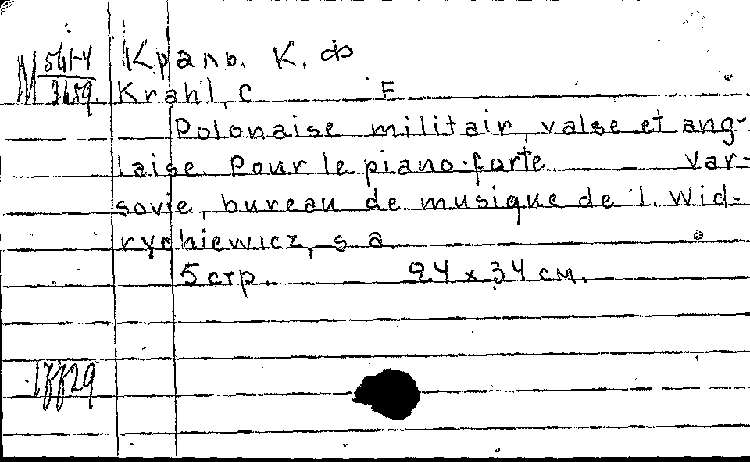 М 541-4 Краль. К. Ф
3459. Krahl, C F
Polonaise militair, valse et ang-
laise. Pour le piano-forte Var-
sovie, bureau de musique de I. Wid-
rychiewicz, s a.
5 стр. 24 x 34 см.